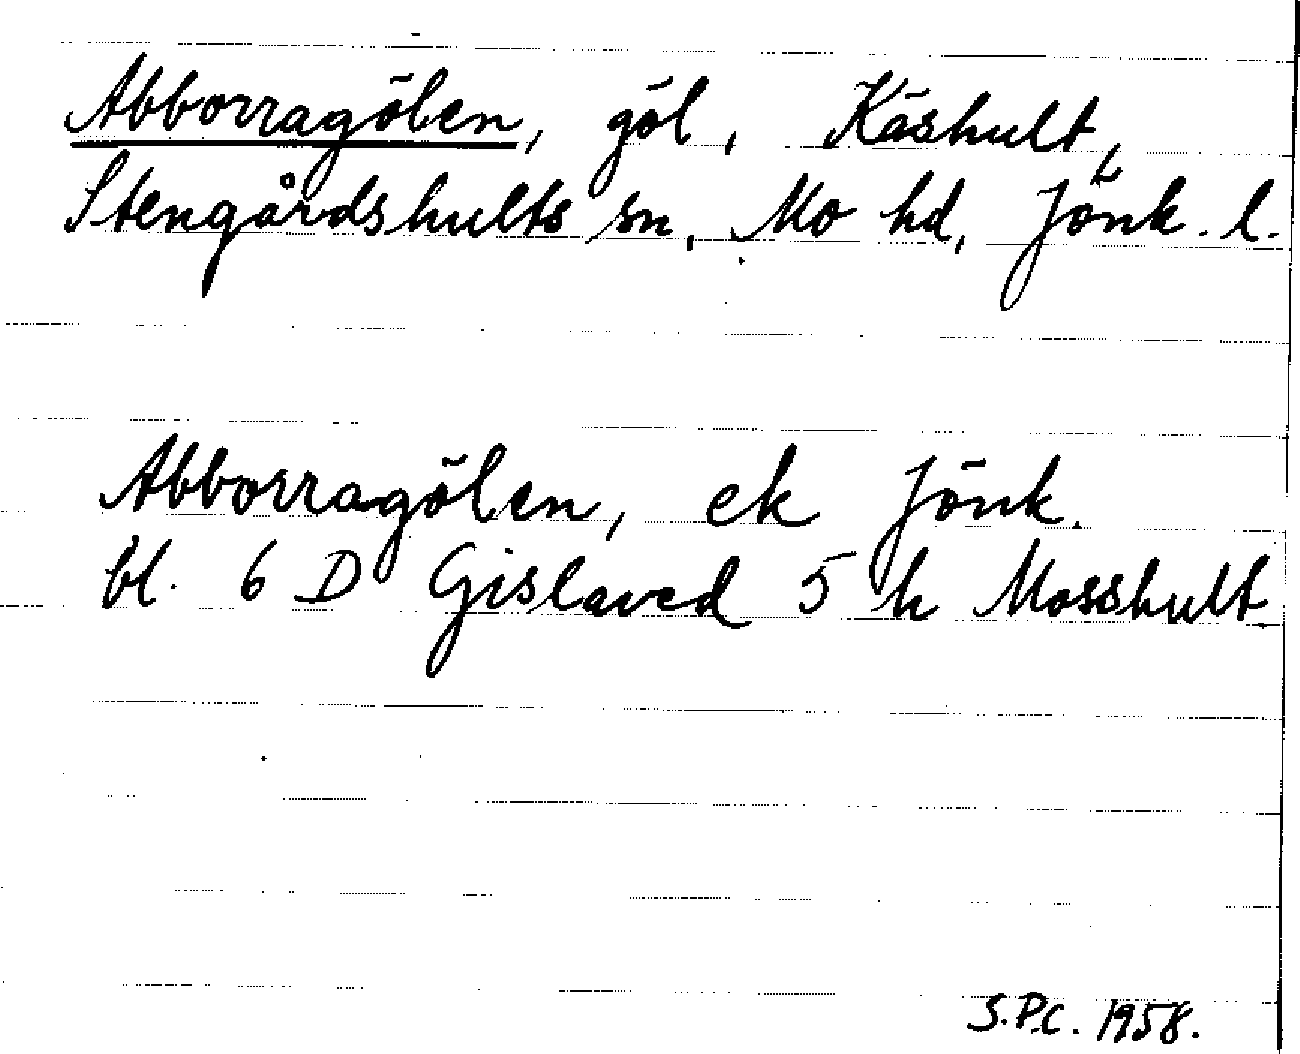 Abborragölen, göl, Käshult,
Stengårdshults sn, Mo hd, Jönk. l.
Abborragölen, ek Jönk.
bl. 6 D Gislaved 5 h Mosshult
S.P.C. 1958.